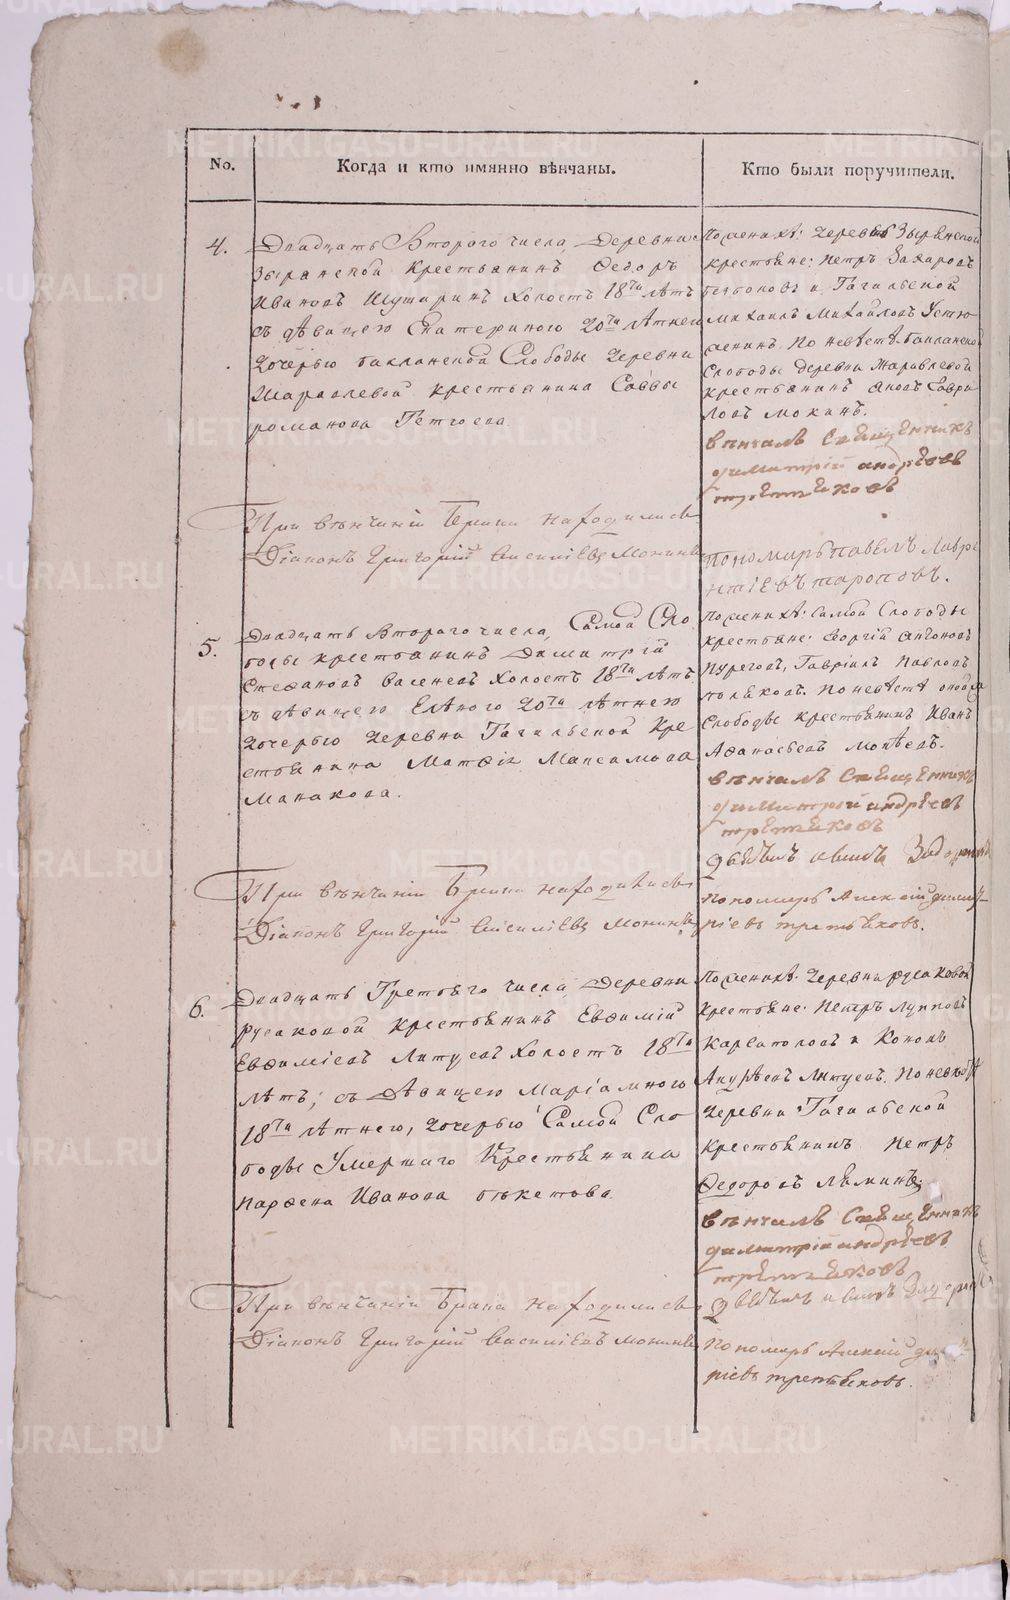 No.
Когда и кто имянно вѣнчаны.
Кто были поручители.
4.
Двадцать Втораго числа, Деревни
Зырянской Крестьянинъ Федоръ
Ивановъ Шушаринъ Холостъ 18ти лѣтъ
съ дѣвицею Екатериною 20ти лѣтнею
дочерью Слободы деревни
крестьянина Саввы
романова
По женихѣ: деревни Зырянской
крестьяне: Петръ Захаровъ
и Тагильской
Михаилъ Михайловъ Устю-
жанинъ. По невѣстѣ
Слободы деревни Жаравлевой
крестьянинъ Яковъ Гаври
ловъ Мохинъ.
вѣнчалъ Священникъ
димитрій андрѣевъ
третьяковъ
При вѣнчаніи брака находились
Діаконъ Григорій Василіевъ
Пономарь павелъ Лавре
нтіевъ тороповъ.
5.
Двадцать Втораго числа, Самой Сло
боды крестьянинъ Димитрій
Степановъ Холостъ 18ти лѣтъ
съ дѣвицею Еленою 20ти лѣтнею
дочерью деревни Тагильской Кре
стьянина Матфея Максимова
Манакова.
По женихѣ: Самой Слободы
крестьяне: Георгій Антоновъ
Пуреговъ, Гавріилъ Павловъ
поляковъ. По невѣстѣ оной
Слободы крестьянинъ Иванъ
Афанасьевъ
вѣнчалъ Священникъ
димитрій андрѣевъ
третьяковъ
дьячекъ иванъ
При вѣнчаніи брака находились
Діаконъ Григорій Василіевъ
пономарь Алексій димит-
ріевъ третьяковъ.
6.
Двадцать Третьяго числа, Деревни
Русаковой крестьянинъ Евфимій
Евфиміевъ Холостъ 18ти
лѣтъ; съ дѣвицею Маріамною
18ти лѣтнею, дочерью Самой Сло
боды Умершаго Крестьянина
Парфена Иванова бѣкетова.
По женихѣ: деревни русаковой
крестьяне: Петръ Лупповъ
Карсаполовъ и Кононъ
Андрѣевъ По невѣстѣ
деревни Тагильской
Крестьянинъ Петръ
Федоровъ Ляминъ.
вѣнчалъ Священникъ
димитрій андрѣевъ
третьяковъ
При вѣнчаніи брака находились
дьячекъ иванъ
Діаконъ Григорій Василіевъ
Пономарь Алексій
ріевъ третьяковъ.
METRIKI.GASO-URAL.RU